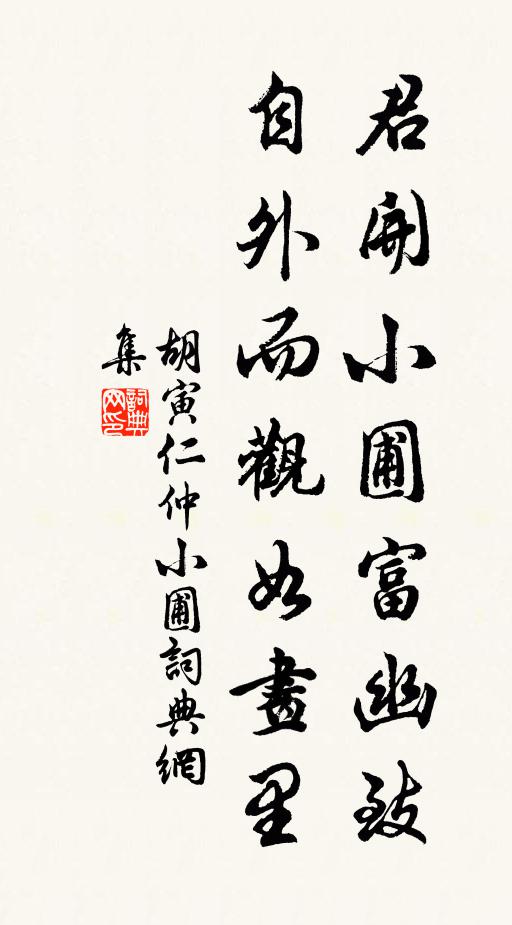 君開小圃富幽致
自外而觀如畫里
胡寅仁仲小圃詞典網
集
詞典
网印